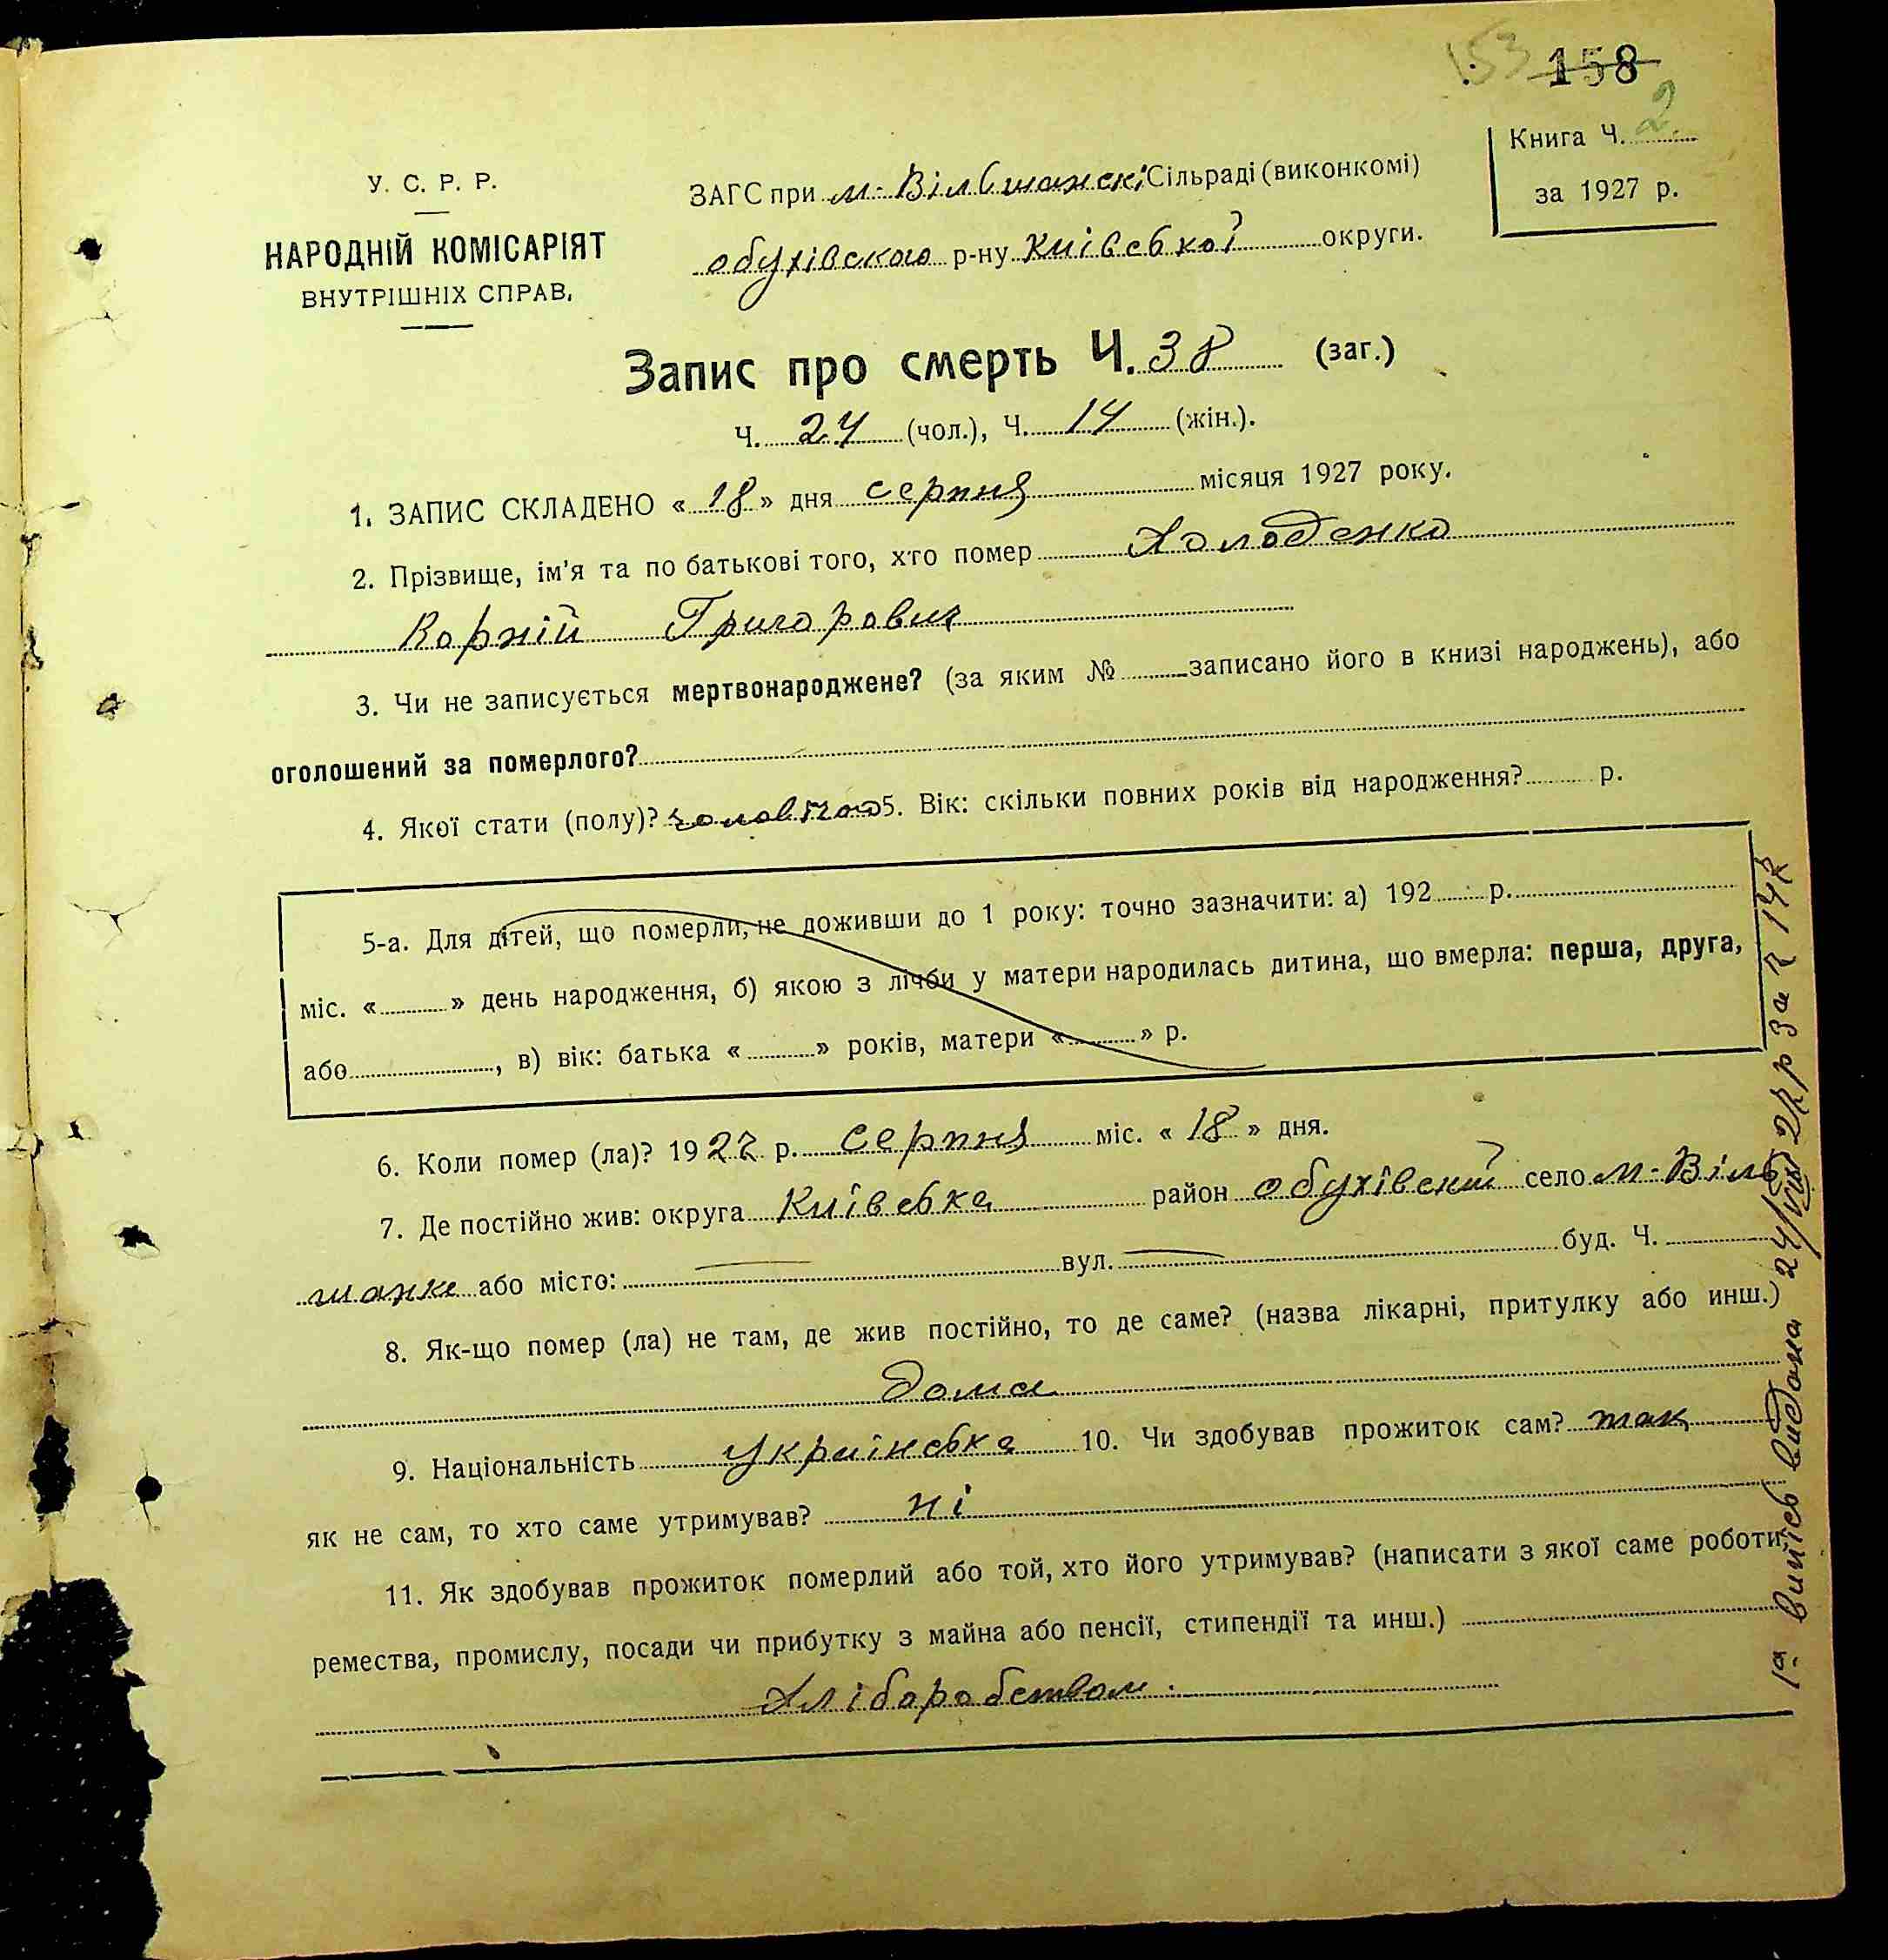 153 158
Книга Ч. 2
за 1927 р.
У. С. Р. Р.
НАРОДНІЙ КОМІСАРІЯТ
ВНУТРІШНІХ СПРАВ.
ЗАГС при м. Вільшанскі Сільраді (виконкомі)
обухівского р-ну Київської округи.
Запис про смерть Ч. 38 (заг.)
Ч. 24 (чол.), Ч. 14 (жін.).
1. ЗАПИС СКЛАДЕНО « 18 » дня серпня місяця 1927 року.
2. Прізвище, ім'я та по батькові того, хто помер Холоденко
Корній Григорович
3. Чи не записується мертвонароджене? (за яким № записано його в книзі народжень), або
оголошений за померлого?
4. Якої стати (полу)? 5. Вік: скільки повних років від народження? р.
5-а. Для дітей, що померли, не доживши до 1 року: точно зазначити: а) 192 р.
міс. « » день народження, б) якою з лічби у матери народилась дитина, що вмерла: перша, друга,
або , в) вік: батька « » років, матери « » р.
6. Коли помер (ла)? 1927 р. серпня міс. « 18 » дня.
7. Де постійно жив: округа Київська район обухівский село м. Віль
шанке або місто: — вул. — буд. Ч.
8. Як-що помер (ла) не там, де жив постійно, то де саме? (назва лікарні, притулку або инш.)
Дома
9. Національність українська 10. Чи здобував прожиток сам? так
як не сам, то хто саме утримував? ні
11. Як здобував прожиток померлий або той, хто його утримував? (написати з якої саме роботи,
ремества, промислу, посади чи прибутку з майна або пенсії, стипендії та инш.)
Хліборобством.
випісь видона 24/VIII 27 р за №147